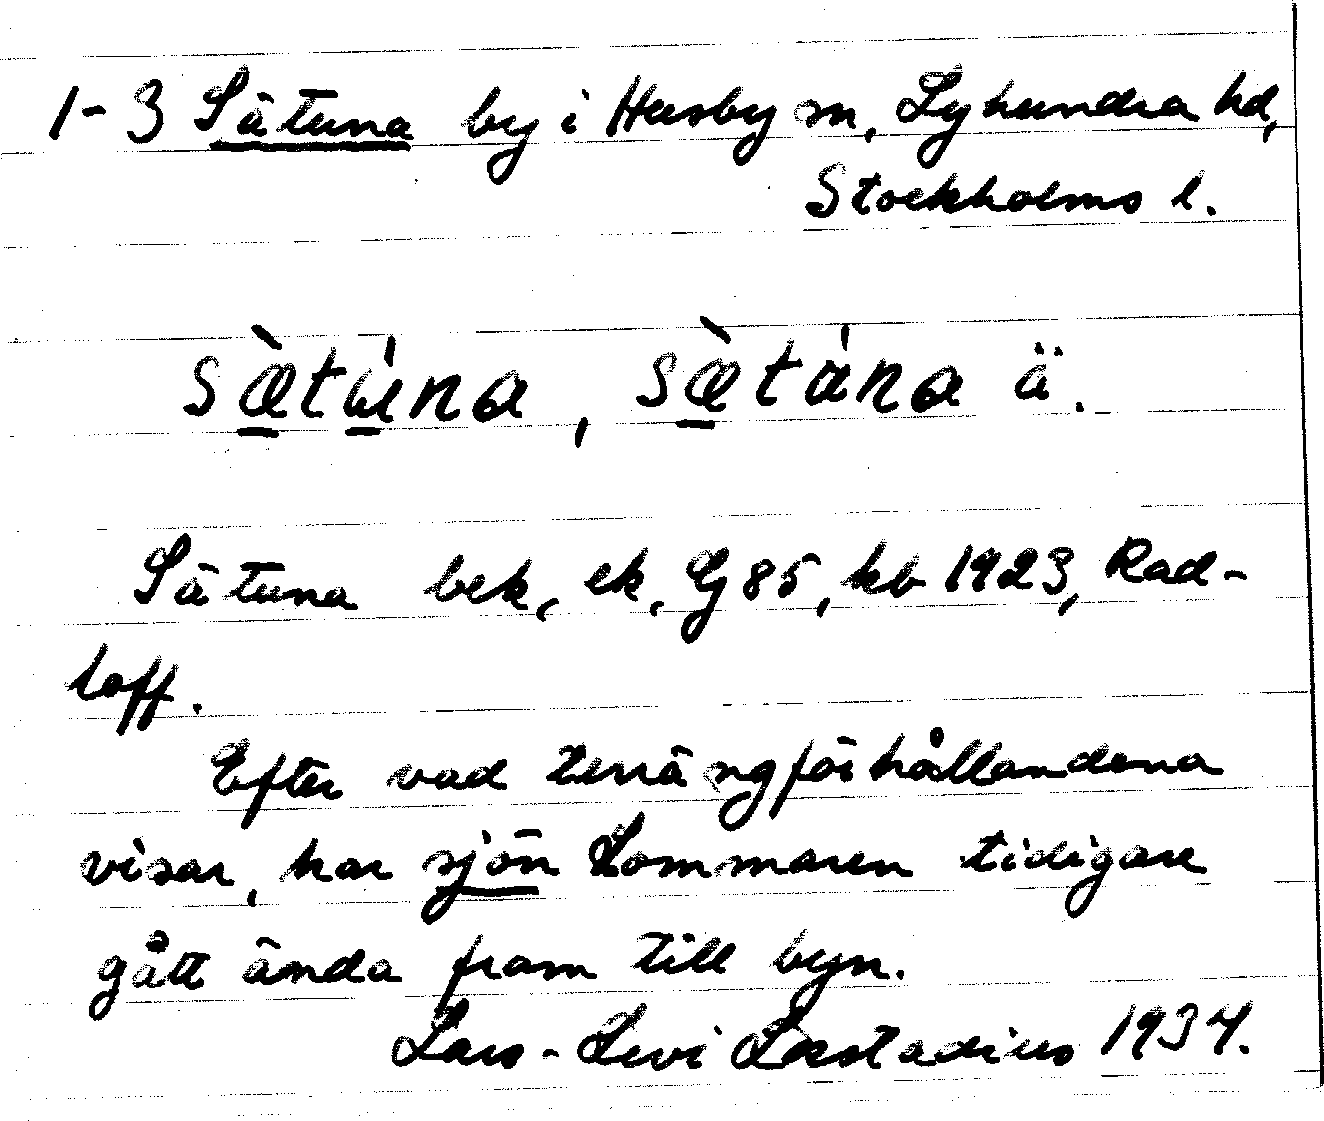 1-3 Sätuna by i Husby sn, Lyhundra hd,
Stockholms l.
sæ̀tùna, sæ̀tána ä.
Sätuna bek, ek, Gj 85, kb 1923, Rad-
loff.
Efter vad terrängförhållandena
visar, har sjön Lommaren tidigare
gått ända fram till byn.
Lars-Levi Læstadius 1934.